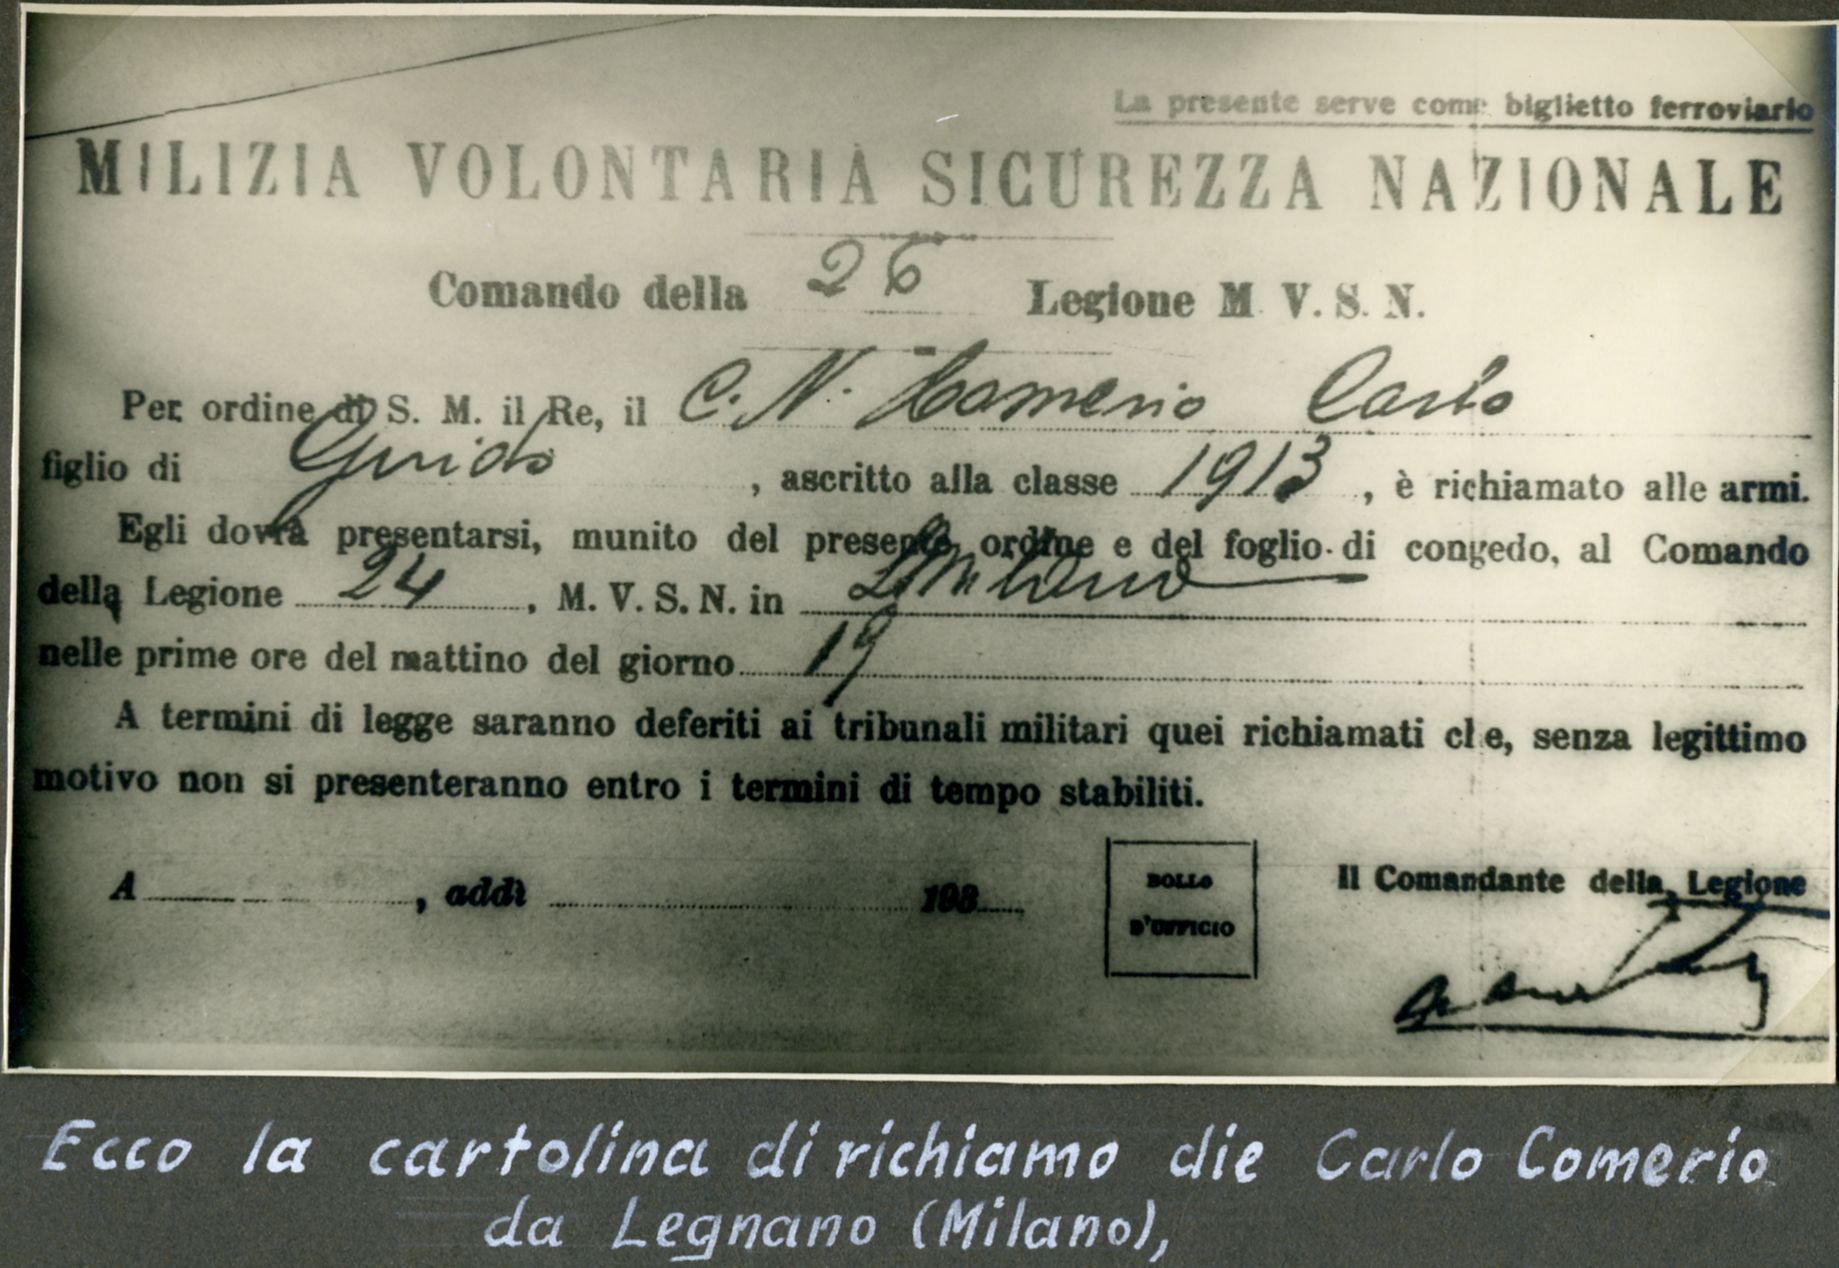 La presente serve come biglietto ferroviario
MILIZIA VOLONTARIA SICUREZZA NAZIONALE
Comando della 26 Legione M. V. S. N.
Per ordine di S. M. il Re, il C. N. Comerio Carlo
figlio di Guido, ascritto alla classe 1913, è richiamato alle armi.
Egli dovrà presentarsi, munito del presente ordine e del foglio di congedo, al Comando
della Legione 24, M. V. S. N. in Milano
nelle prime ore del mattino del giorno 19
A termini di legge saranno deferiti ai tribunali militari quei richiamati che, senza legittimo
motivo non si presenteranno entro i termini di tempo stabiliti.
A, addì 193
BOLLO
D'UFFICIO
Il Comandante della Legione
Ecco la cartolina di richiamo die Carlo Comerio
da Legnano (Milano),